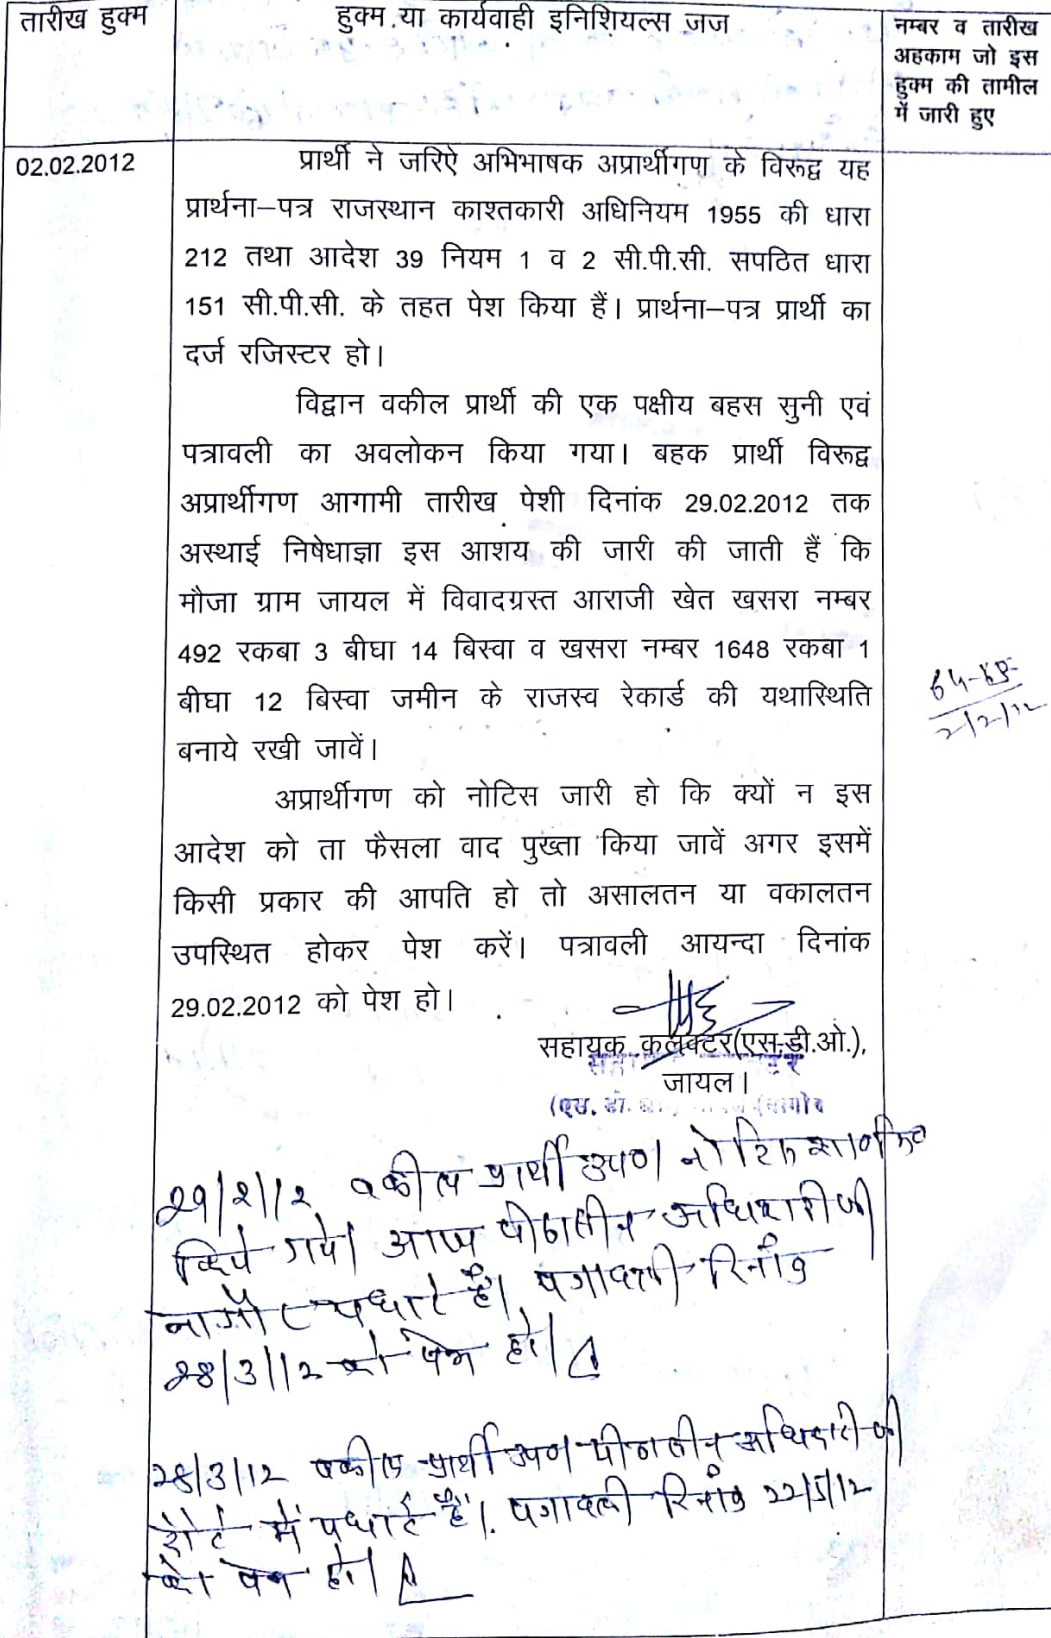 तारीख हुक्म
हुक्म या कार्यवाही इनिशियल्स जज
नम्बर व तारीख
अहकाम जो इस
हुक्म की तामील
में जारी हुए
02.02.2012
प्रार्थी ने जरिऐ अभिभाषक अप्रार्थीगण के विरूद्व यह
प्रार्थना–पत्र राजस्थान काश्तकारी अधिनियम 1955 की धारा
212 तथा आदेश 39 नियम 1 व 2 सी.पी.सी. सपठित धारा
151 सी.पी.सी. के तहत पेश किया हैं। प्रार्थना–पत्र प्रार्थी का
दर्ज रजिस्टर हो।
विद्वान वकील प्रार्थी की एक पक्षीय बहस सुनी एवं
पत्रावली का अवलोकन किया गया। बहक प्रार्थी विरूद्व
अप्रार्थीगण आगामी तारीख पेशी दिनांक 29.02.2012 तक
अस्थाई निषेधाज्ञा इस आशय की जारी की जाती हैं कि
मौजा ग्राम जायल में विवादग्रस्त आराजी खेत खसरा नम्बर
492 रकबा 3 बीघा 14 बिस्वा व खसरा नम्बर 1648 रकबा 1
बीघा 12 बिस्वा जमीन के राजस्व रेकार्ड की यथास्थिति
बनाये रखी जावें।
2/2/12
अप्रार्थीगण को नोटिस जारी हो कि क्यों न इस
आदेश को ता फैसला वाद पुख्ता किया जावें अगर इसमें
किसी प्रकार की आपति हो तो असालतन या वकालतन
उपस्थित होकर पेश करें। पत्रावली आयन्दा दिनांक
29.02.2012 को पेश हो।
सहायक कलक्टर(एस.डी.ओ.),
जायल।
29/2/12 वकील प्रार्थी उपण नोटिस
किये गये। आज पीठासीन अधिकारी जी
नागौर पधारे हैं। पत्रावली दिनांक
28/3/12 को पेश हो।
28/3/12 वकील प्रार्थी उपण पीठासीन अधिकारी जी
में पधारे हैं। पत्रावली दिनांक 22/5/12
को पेश हो।